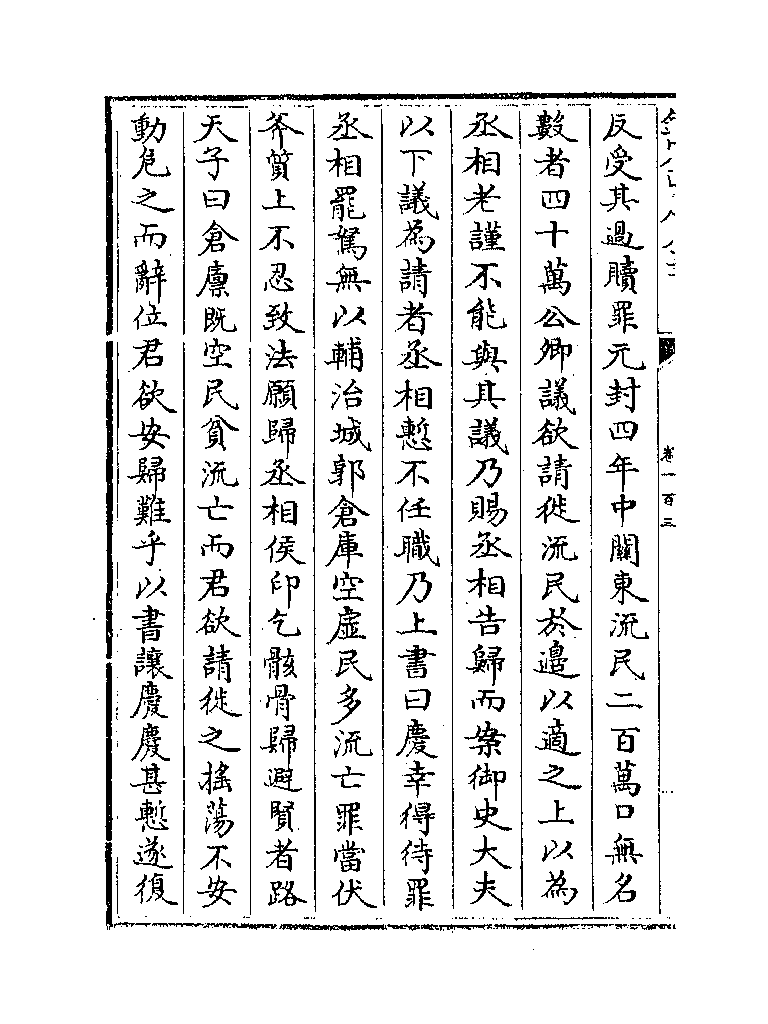 反受其過贖罪元封四年中關東流民二百萬口無名
數者四十萬公卿議欲請徙流民於邊以適之上以為
丞相老謹不能與其議乃賜丞相告歸而案御史大夫
以下議為請者丞相慙不任職乃上書曰慶幸得待罪
丞相罷駑無以輔治城郭倉庫空虛民多流亡罪當伏
斧質上不忍致法願歸丞相侯印乞骸骨歸避賢者路
天子曰倉廩既空民貧流亡而君欲請徙之搖蕩不安
動危之而辭位君欲安歸難乎以書讓慶慶甚慙遂復
卷一百三